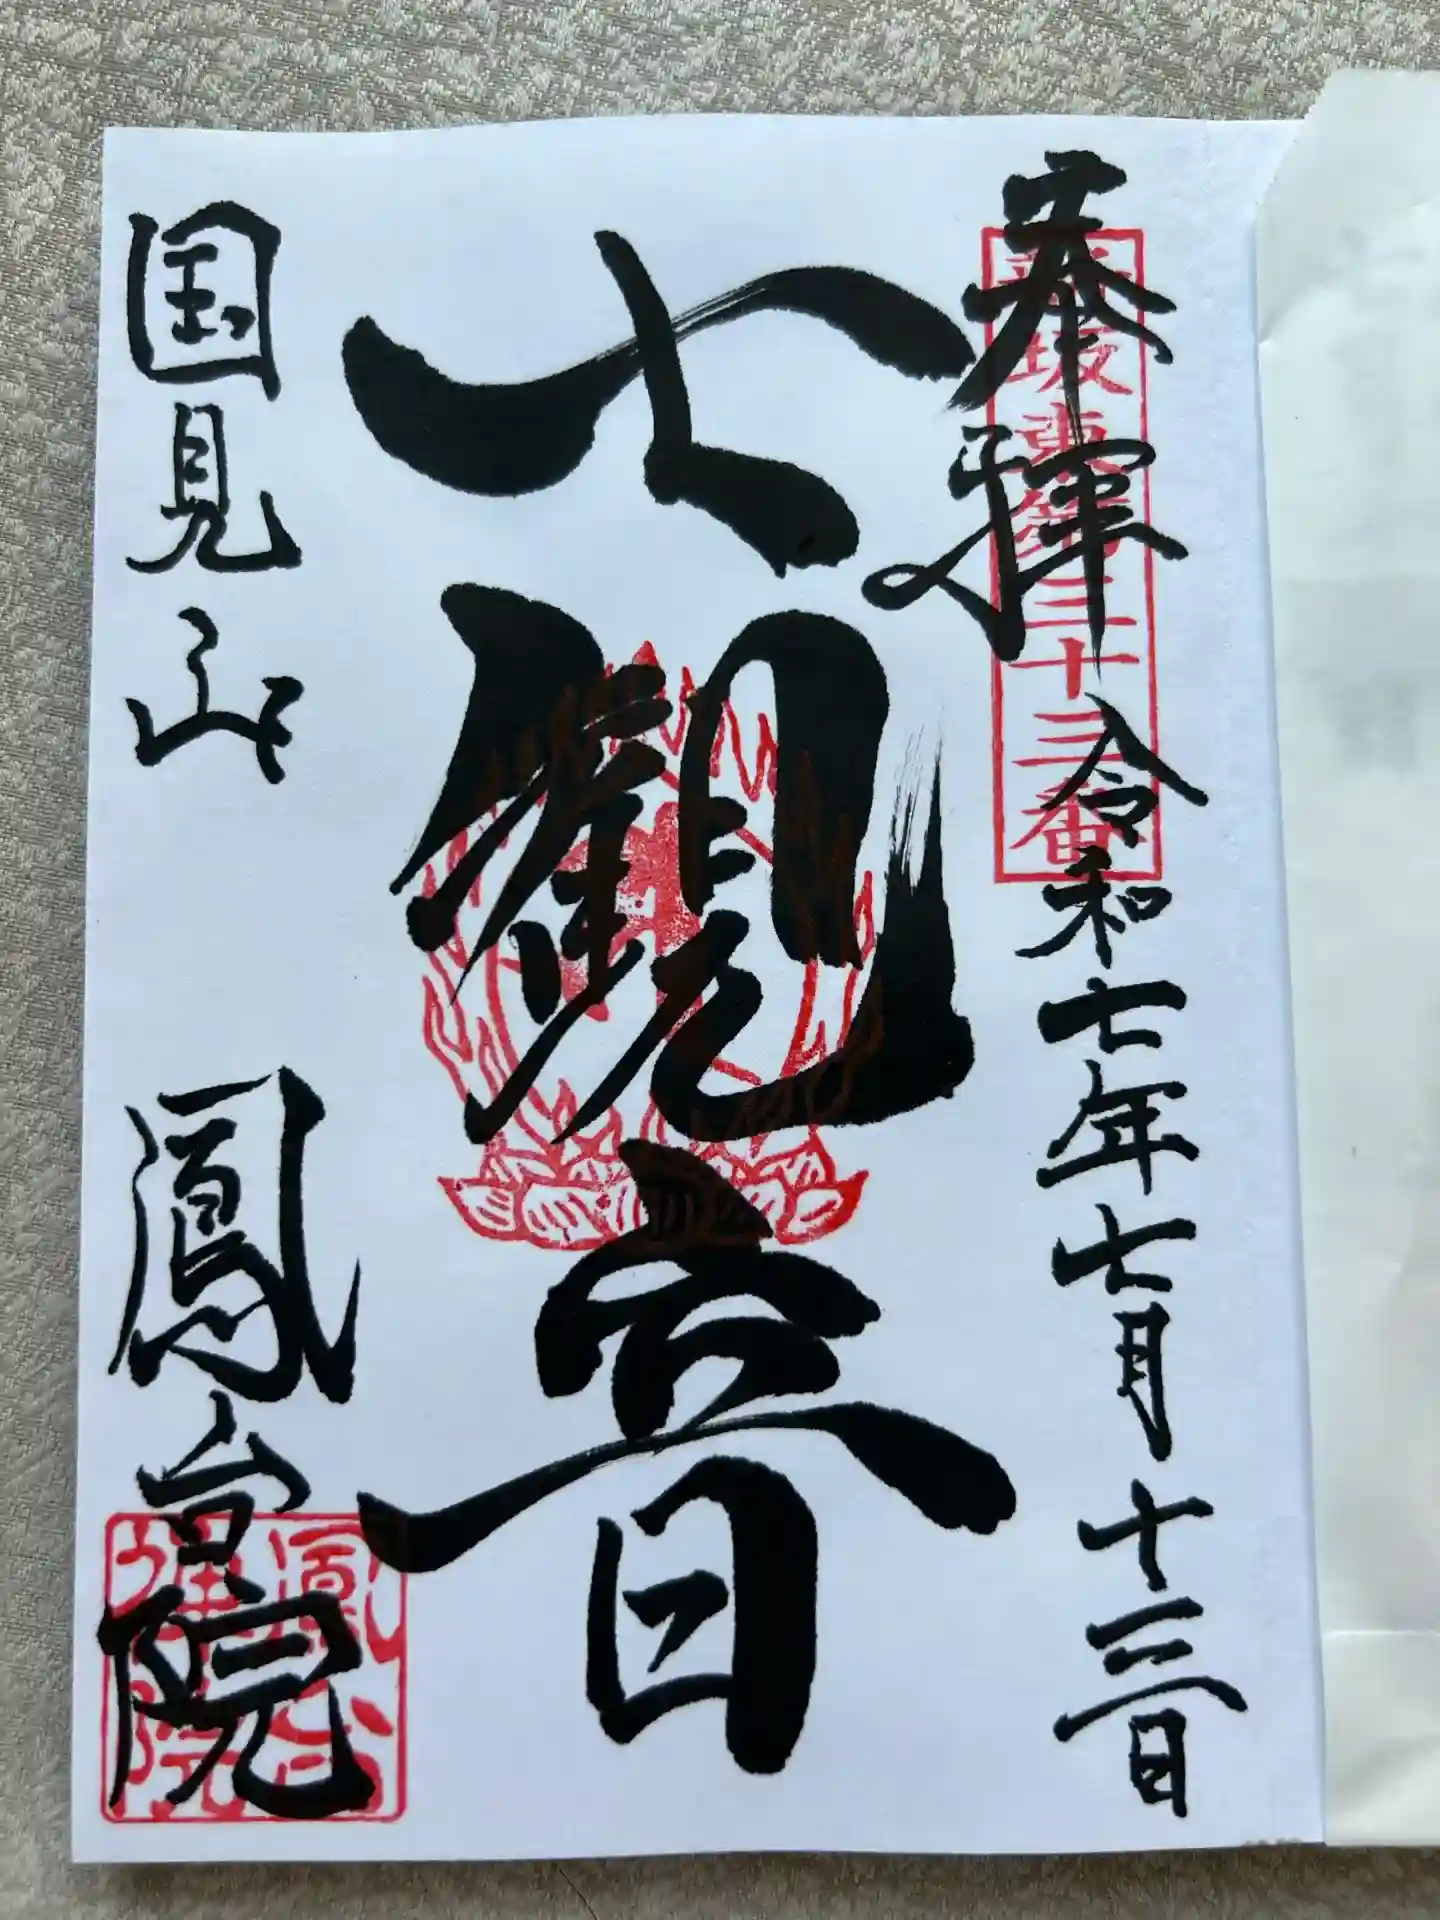 奉拝 令和七年七月十三日
坂東第三十三番
七観音
国見山 鳳台院
鳳台
禅院